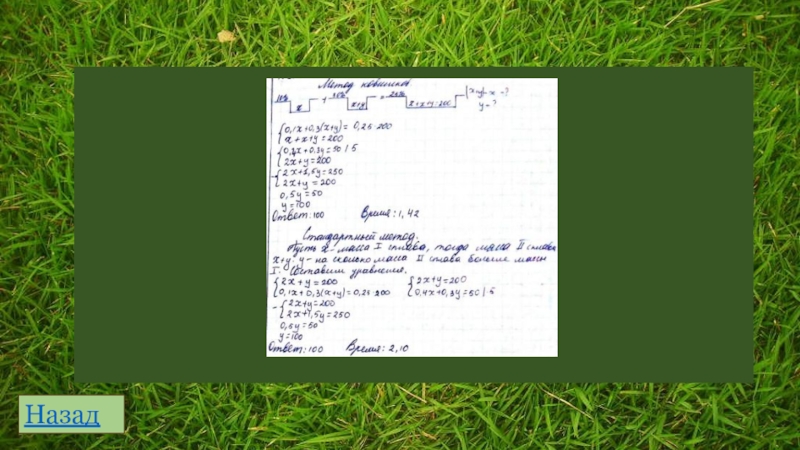 Метод ковшиков.
10% + 30% = 25% |x+y|-x-?
x x+y x+x+y=200 y-?
{0,1x+0,3(x+y)= 0,25·200
x+x+y=200
{0,4x+0,3y=50 |·5
2x+y=200
-{2x+1,5y=250
2x+y=200
0,5y=50
y=100
Ответ: 100 Время: 1,42
Стандартный метод.
Пусть x-масса I сплава, тогда масса II сплава
x+y, y-на сколько масса II сплава больше массы
I. Составим уравнения.
{2x+y=200 {2x+y=200
0,1x+0,3(x+y)=0,25·200 0,4x+0,3y=50 |·5
-{2x+y=200
2x+1,5y=250
0,5y=50
y=100
Ответ: 100 Время: 2,10
Назад